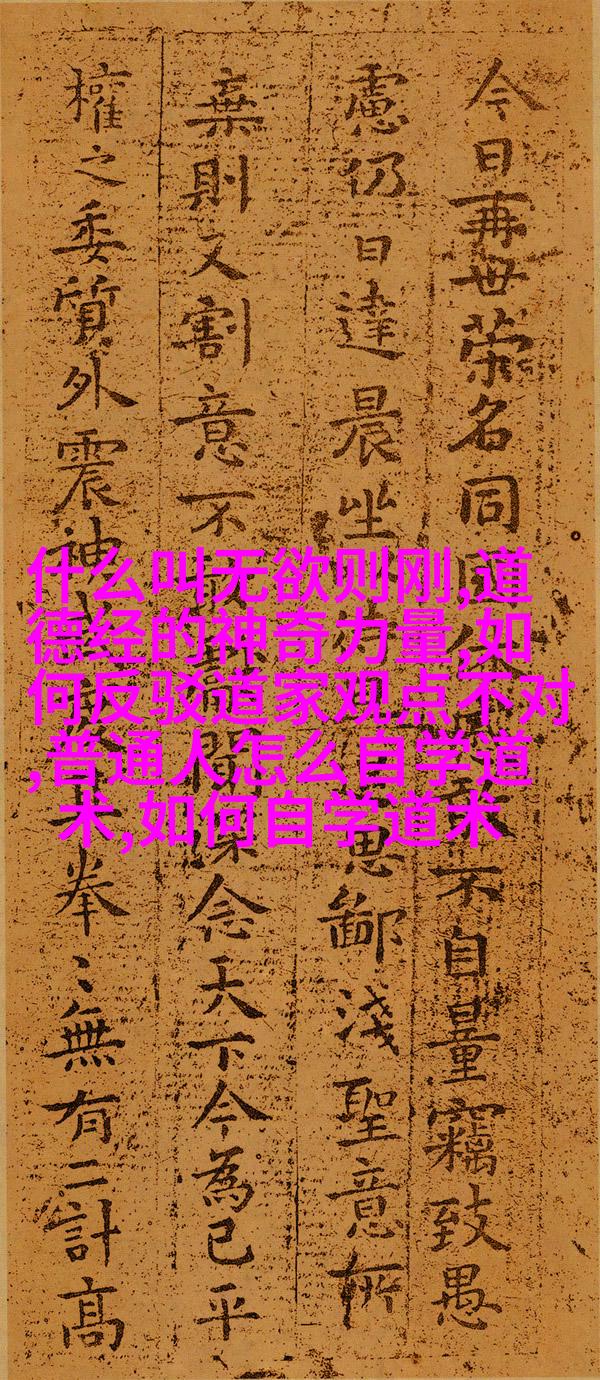 今日再世榮名同國休敢不自量竊致愚
慮仍日達晨坐思鄙淺聖意所
棄則又割意不敢聞深念天下今為已平
權之委質外震神拳〻無有二計高
什么叫无欲则刚,道
德经的神奇力量,如
何反驳道家观点不对
,普通人怎么自学道
术,如何自学道术